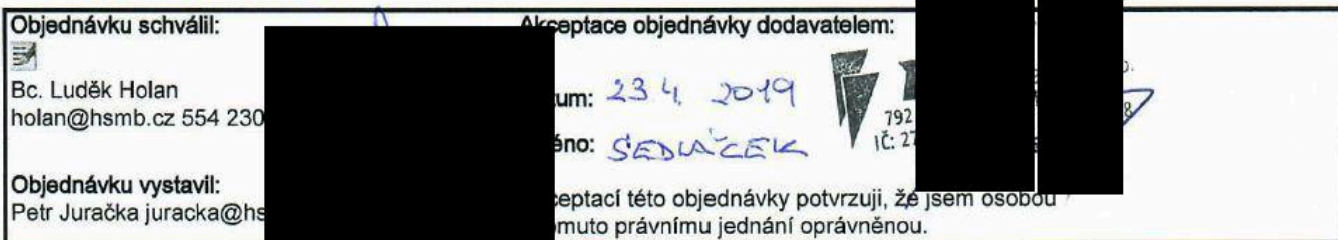 Objednávku schválil:
Bc. Luděk Holan
holan@hsmb.cz 554 230
Objednávku vystavil:
Petr Juračka juracka@hs
Akceptace objednávky dodavatelem:
tum: 23 4. 2019
éno: SEDLÁČEK
792
IČ: 27
8
ceptací této objednávky potvrzuji, že jsem osobou
omuto právnímu jednání oprávněnou.